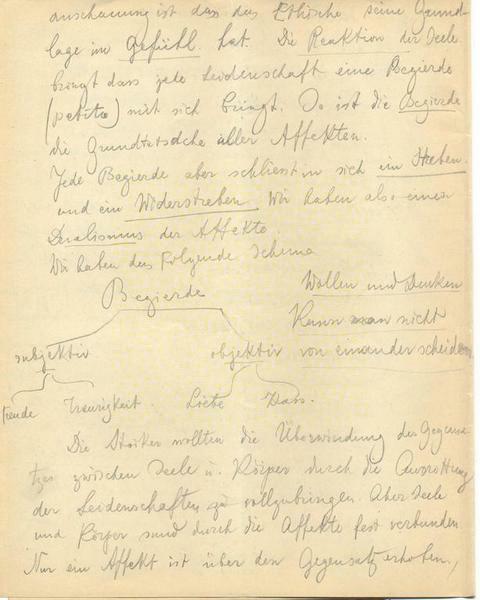 anschauung ist dass das Ethische seine Grund-
lage im Gefühl hat. Die Reaktion der Seele
bringt dass jede Leidenschaft eine Begierde
(petito) mit sich bringt. So ist die Begierde
die Grundtatsache aller Affekten.
Jede Begierde aber schliesst in sich ein Streben
und ein Widerstreben. Wir haben also einen
Dualismus der Affekte.
Wir haben das folgende Schema
Begierde
subjektiv objektiv
Freude Traurigkeit. Liebe Hass.
Wollen und Denken
Kann man nicht
von einander scheiden
Die Stoiker wollten die Überwindung des Gegensa-
tzes zwischen Seele u. Körper durch die Ausrottung
der Leidenschaften zu vollzubringen. Aber Seele
und Körper sind durch die Affekte fest verbunden
Nur ein Affekt ist über den Gegensatz erhoben,